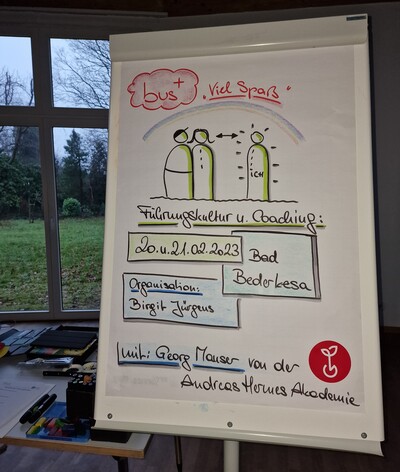 bus+ „Viel Spaß“
ICH
Führungskultur u. Coaching:
20. u. 21.02.2023
Bad
Bederkesa
Organisation:
Birgit Jürgens
mit: Georg Mauser von der
Andreas Hermes Akademie